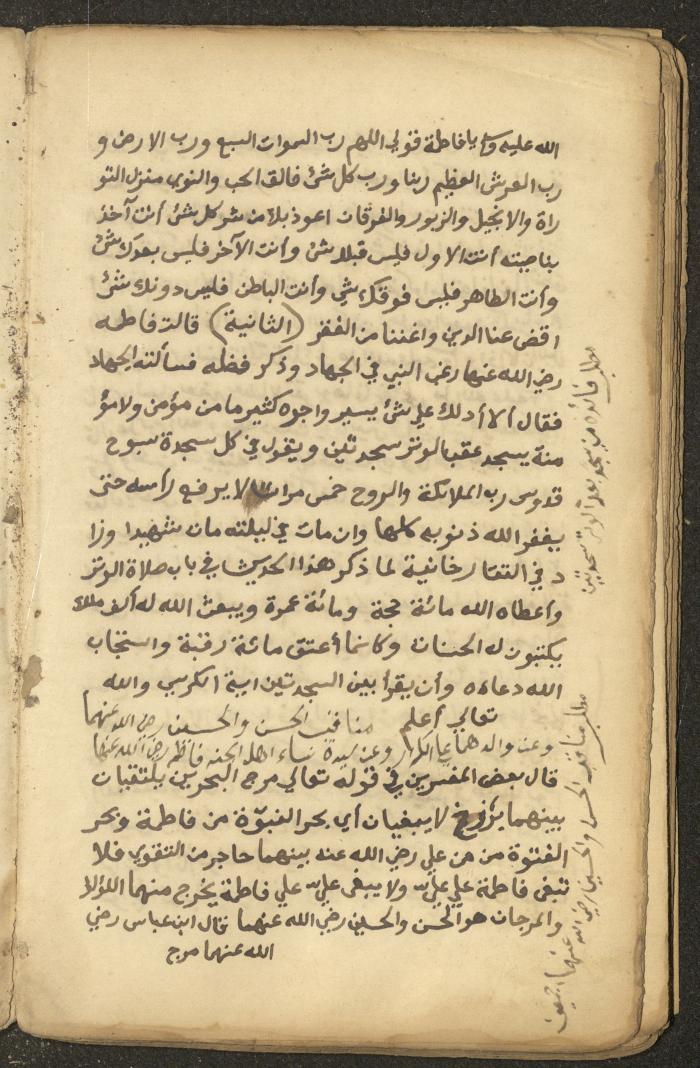 الله عليه وسلم يا فاطمة قولي اللهم رب السموات السبع ورب الارض و
رب العرش العظيم ربنا ورب كل شئ فالق الحب والنوى منزل التو
راة والانجيل والزبور والفرقان اعوذ بك من شر كل شئ أنت آخذ
بناصيته أنت الاول فليس قبلك شئ وأنت الآخر فليس بعدك شئ
وأنت الظاهر فليس فوقك شي وأنت الباطن فليس دونك شئ
اقض عنا الدين واغننا من الفقر (الثانية) قالت فاطمه
رضي الله عنها رغب النبي في الجهاد وذكر فضله فسألته الجهاد
فقال ألا أدلك على شئ يسير واجره كثير ما من مؤمن ولا مؤ
منة يسجد عقب الوتر سجدتين ويقول في كل سجدة سبوح
قدوس رب الملائكة والروح خمس مرات لا يرفع رأسه حتى
يغفر الله ذنوبه كلها وان مات في ليلته مات شهيدا وزا
د في التتارخانية لما ذكر هذا الحديث في باب صلاة الوتر
وأعطاه الله مائة حجة ومائة عمرة ويبعث الله له ألف ملك
يكتبون له الحسنات وكانما أعتق مائة رقبة واستجاب
الله دعاءه وأن يقرأ بين السجدتين اية الكرسي والله
تعالى أعلم مناقب الحسن والحسين رضي الله عنهما
وعن والدهما علي الكرار وعن سيدة نساء اهل الجنه فاطمه رضي الله عنها
قال بعض المفسرين في قوله تعالى مرج البحرين يلتقيان
بينهما برزخ لا يبغيان أي بحر النبوّة من فاطمة وبحر
الفتوة من من علي رضي الله عنه بينهما حاجر من التقوى فلا
تبغى فاطمة على علي ولا يبغى علي على فاطمة يخرج منهما اللؤلؤ
والمرجان هو الحسن والحسين رضي الله عنهما قال ابن عباس رضي
الله عنهما مرج
مطلب فائده من سجد بعد الوتر سجدتين
مطلب مناقب الحسن والحسين رضي الله عنهما اجمعين